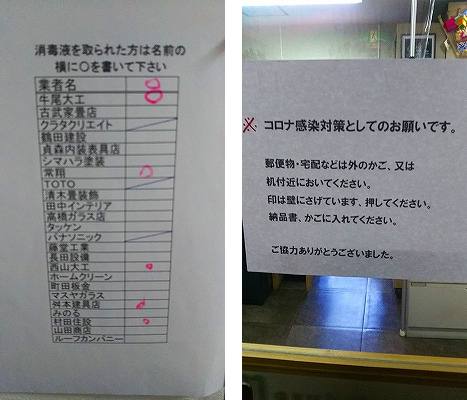 消毒液を取られた方は名前の
横に〇を書いて下さい
業者名 〇
牛尾大工 〇
古武家畳店
クラタクリエイト
鶴田建設
貞森内装表具店
シマハラ塗装
常翔 〇
TOTO
清木畳装飾
田中インテリア
高橋ガラス店
タッケン
パナソニック
藤堂工業
長田設備
西山大工 〇
ホームクリーン
町田板金
マスヤガラス
舛本建具店 〇
みのる
村田住設 〇
山田商店
ルーフカンパニー
※ コロナ感染対策としてのお願いです。
郵便物・宅配などは外のかご、又は
机付近においてください。
印は壁にさげています、押してください。
納品書、かごに入れてください。
ご協力ありがとうございました。